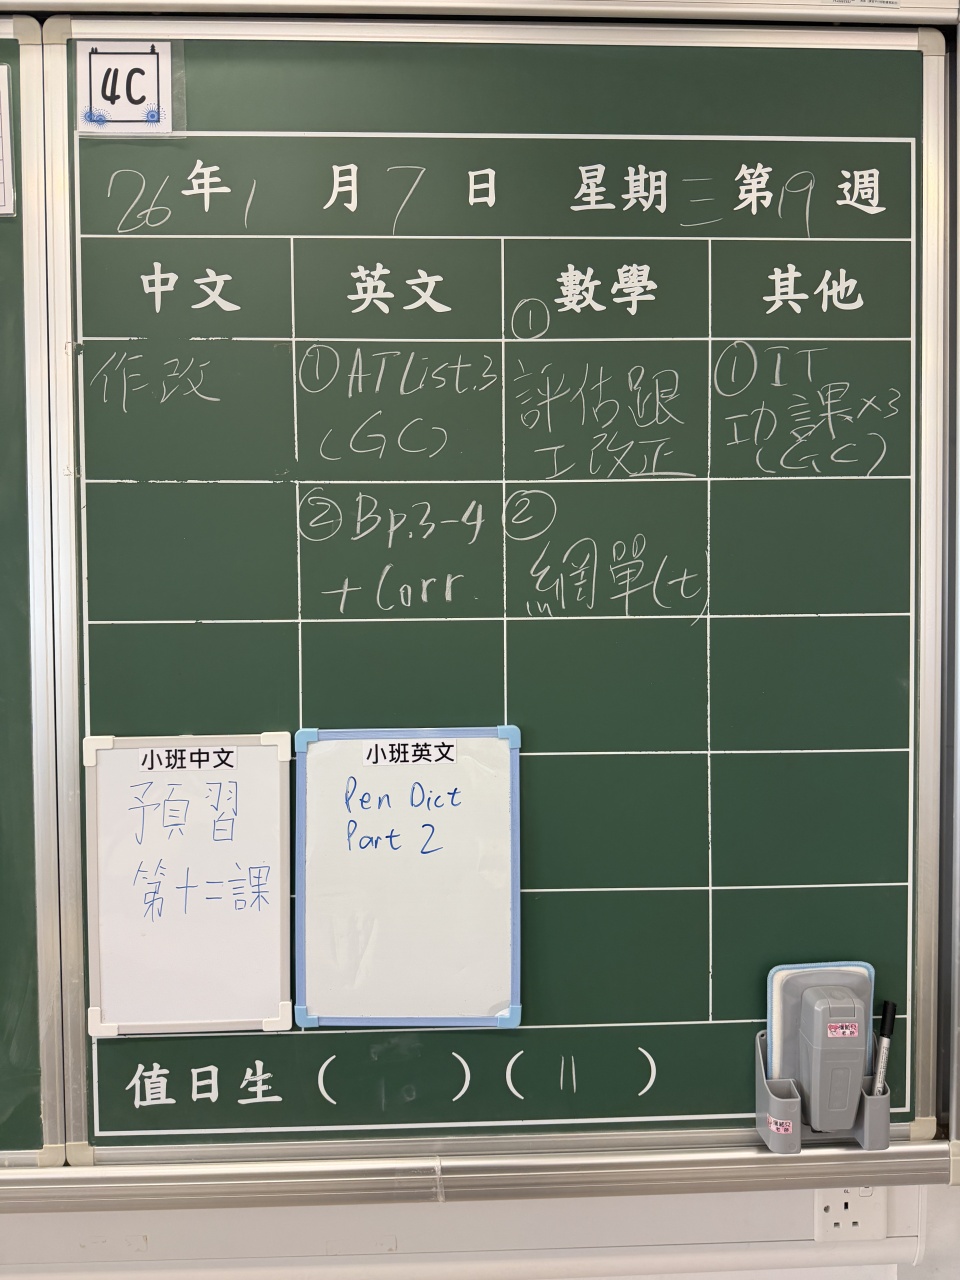 4C
26年1月7日 星期三 第19週
中文 英文 數學 其他
作改
① ATList.3
(GC)
② Bp.3-4
+ Corr.
①
評估跟
工改正
②
網單(t)
① IT
功課×3
(GC)
小班中文
預習
第十二課
小班英文
Pen Dict
Part 2
值日生 ( ) ( 11 )